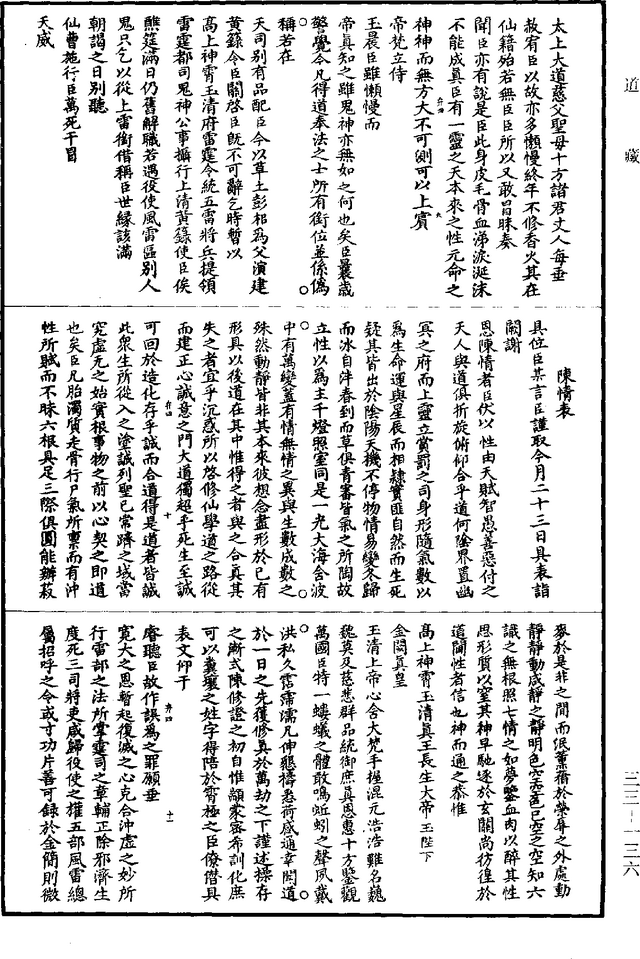 道藏
太上大道慈父聖母十方諸君丈人每垂
赦宥臣以故亦多懶慢終年不修香火其在
仙籍殆若無臣臣所以又敢冒昧奏
聞臣亦有說是臣此身皮毛骨血涕淚涎沫
不能成真臣有一靈之天本來之性元命之
神神而無方大不可測可以上賓
帝梵立侍
玉晨臣雖懶慢而
帝真知之雖鬼神亦無如之何也矣臣曩歲
警覺令凡得道奉法之士所有銜位並係偽
稱若在
天司別有品配臣今以草土彭耜為父演建
黃籙令臣關啓臣既不可辭乞時暫以
高上神霄玉清府雷霆令統五雷將兵提領
雷霆都司鬼神公事攝行上清黃籙使臣俟
醮筵滿日仍舊解職若遇役使風雷區別人
鬼只乞以從上雷銜借稱臣世緣該滿
朝謁之日別聽
仙曹施行臣萬死干冒
天威
陳情表
具位臣某言臣謹取今月二十三日具表詣
闕謝
恩陳情者臣伏以性由天賦智愚善惡付之
天人與道俱折旋俯仰合乎道何陰界置幽
冥之府而上靈立賞罰之司身形隨氣數以
為生命運與星辰而相隸實匪自然而生死
疑其皆出於陰陽天機不停物情易變冬歸
而冰自泮春到而草俱青蕃皆氣之所陶故
立性以為主千燈照室同是一光大海含波
中有萬變蓋有情無情之異與生數成數之
殊然動靜皆非其本來彼想念盡形於已有
形具以後道在其中惟得之者與之合真其
失之者宜乎沉惑所以啓修仙學道之路從
而建正心誠意之門大道獨超乎死生至誠
可回於造化存乎誠而合道得是道者皆誠
此眾生所從入之塗誠列聖已常躋之域當
究虛无之始實根事物之前以心契之即道
也矣臣凡胎濁質走骨行尸氣所稟而有沖
性所賦而不昧六根具足三際俱圓能辦菽
麥於是非之間而紙薰蕕於榮辱之外處動
靜靜動咸靜之靜明色空空色已空之空知六
識之無根照七情之如夢鑿血肉以醉其性
思形質以窒其神早馳逐於玄關尚彷徨於
道閫性者信也神而通之恭惟
高上神霄玉清真王長生大帝玉陛下
金闕真皇
玉清上帝心含大梵手握混元浩浩難名巍
巍莫及慈悲群品統御庶真恩惠十方鑒觀
萬國臣特一螻蟻之體敢鳴蚯蚓之聲夙戴
洪私久霑濡凡伸懇禱悉荷感通幸聞道
於一日之先獲修真於萬劫之下謹述操存
之漸式陳修證之初自惟顓蒙審希訓化庶
可以糞壤之姓字得陪於霄極之臣僚僭具
表文仰干
睿聽臣故作誤為之罪願垂
寬大之恩暫起復滅之心克合沖虛之妙所
行雷部之法所掌霆司之章輔正除邪濟生
度死三司將吏咸歸役使之權五部風雷總
屬招呼之令或寸功片善可錄於金簡則微
三三－一三六